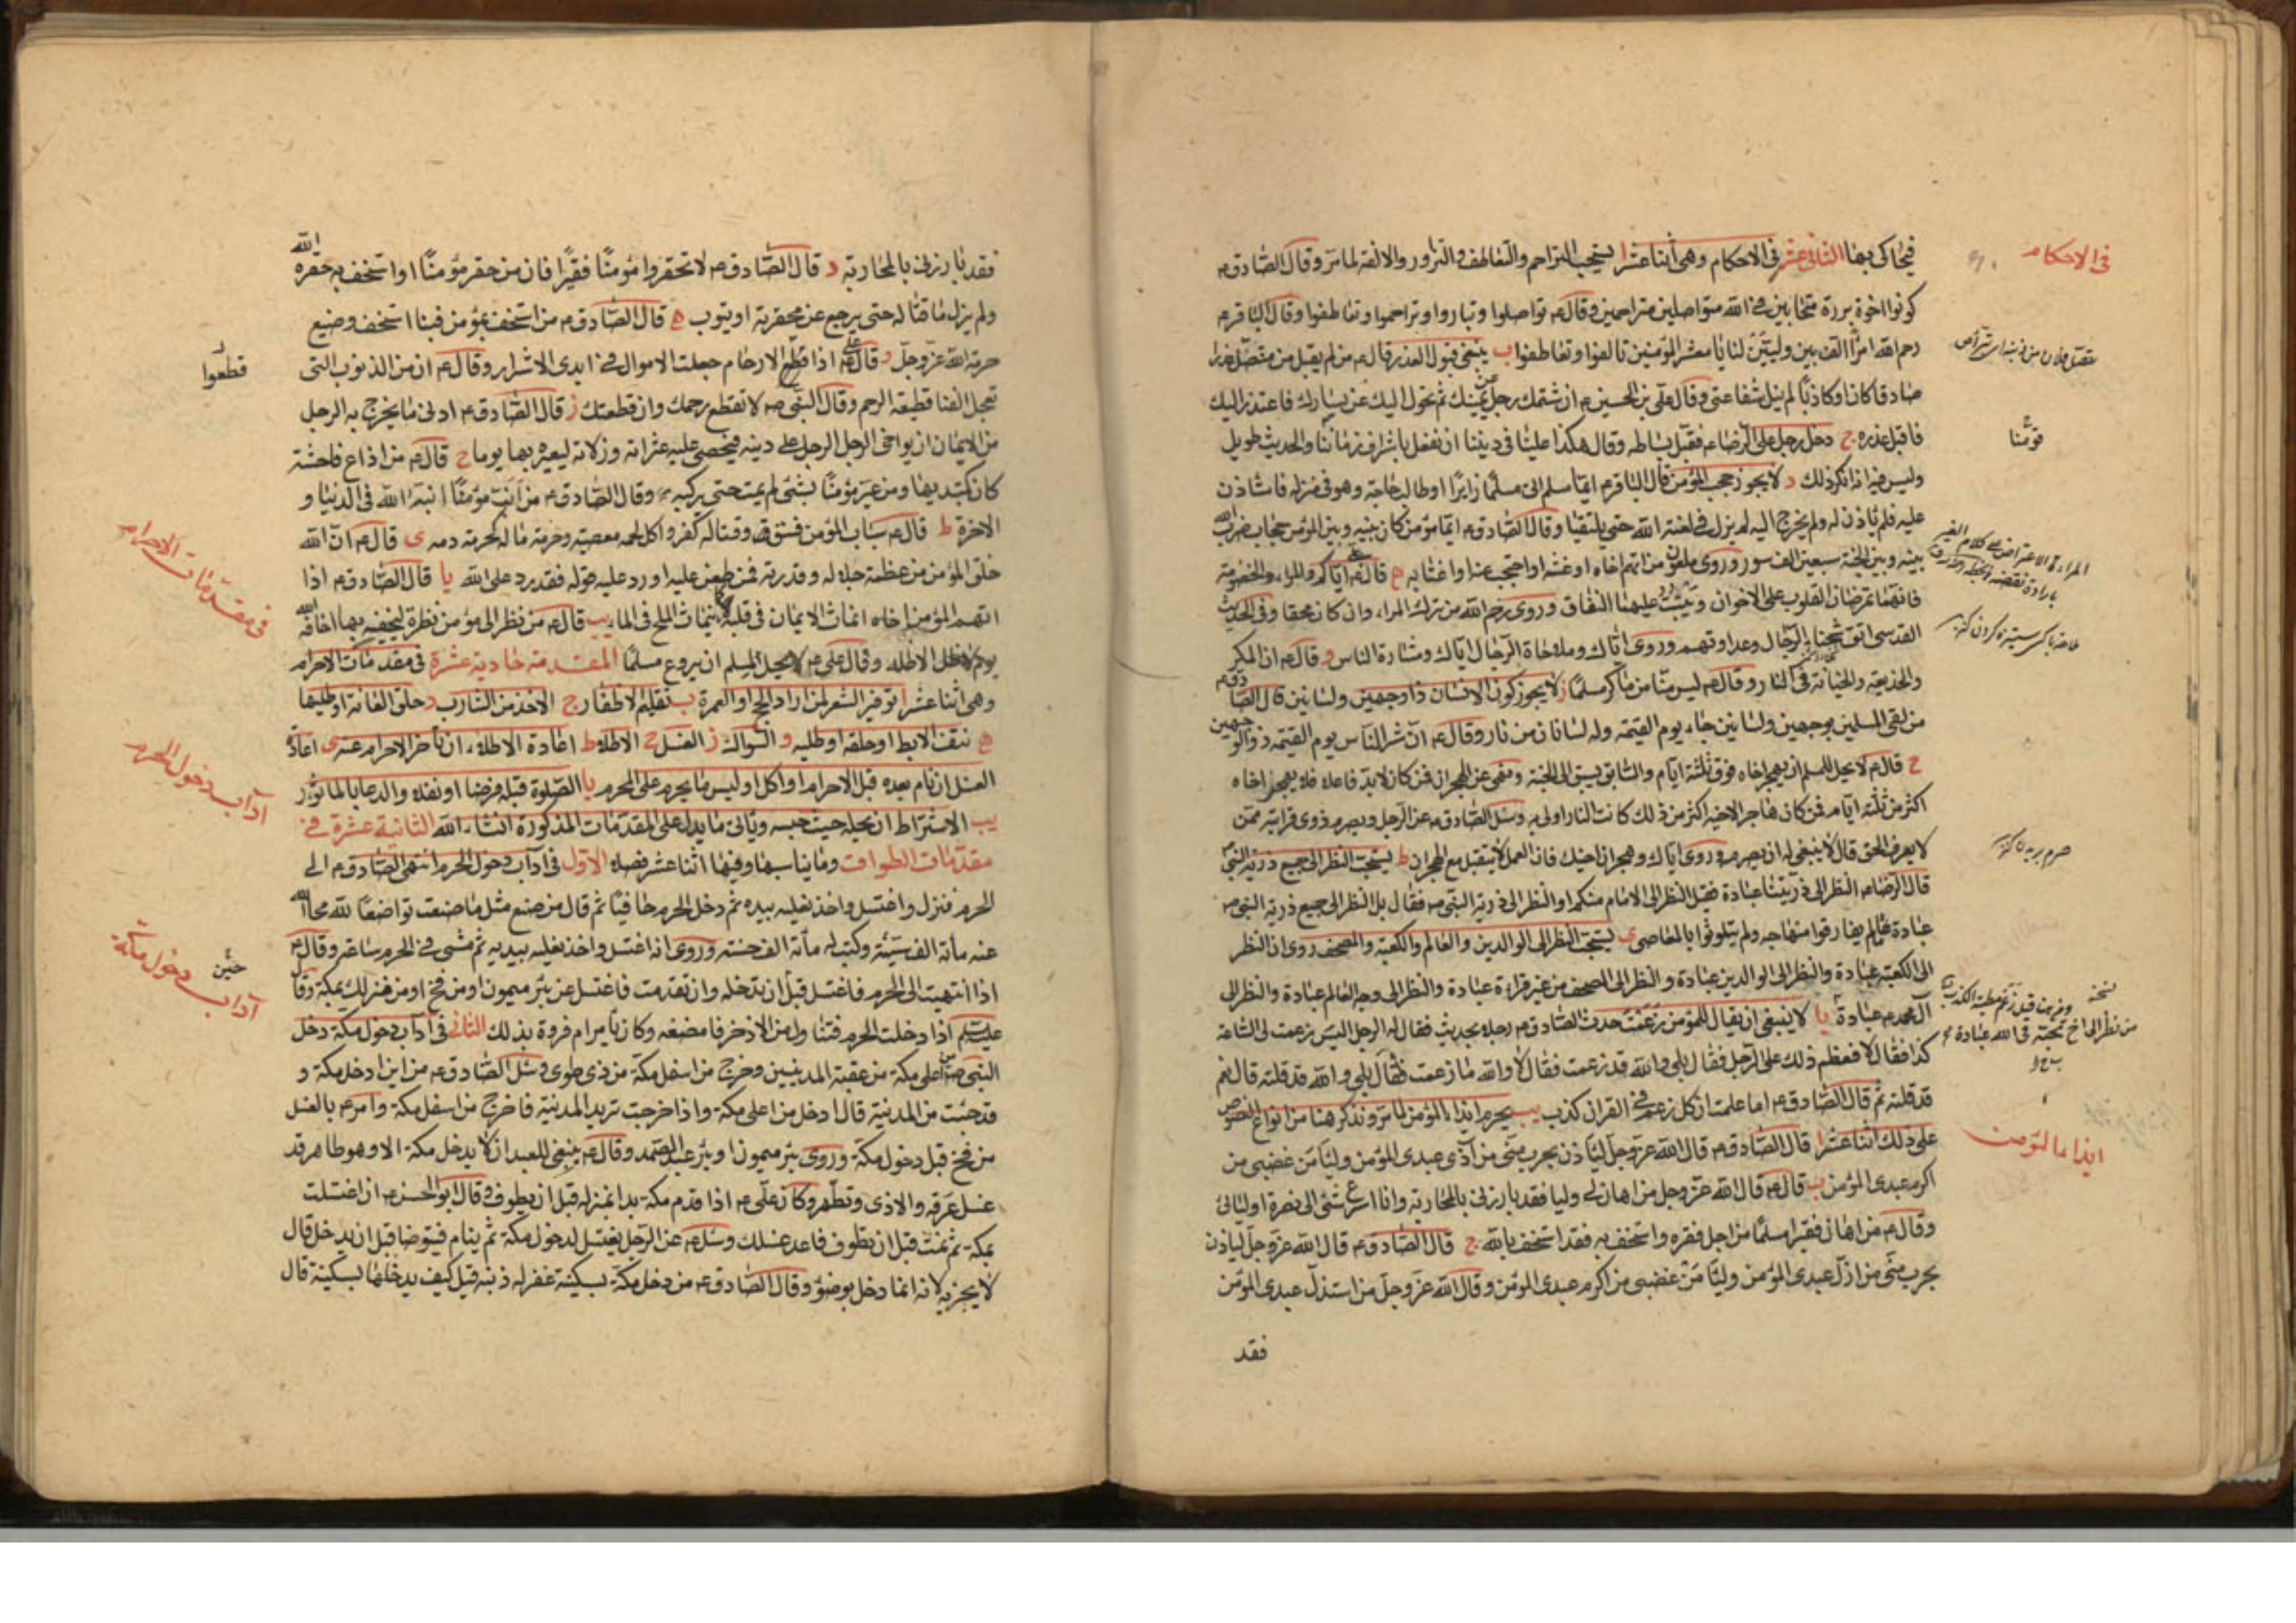 في الاحكام
فيحاكى بها الثاني عشر في الاحكام وهي اثنا عشر ا يستحب التراحم والتعاطف والتزاور والالفة لما مر وقال الصادق ع
كونوا اخوة بررة متحابين في الله متواصلين متراحمين وقال ع تواصلوا وتباروا وتراحموا وتعاطفوا وقال الباقر ع
رحم الله امرأ الف بين وليين لنا يا معشر المؤمنين تالفوا وتعاطفوا ب ينبغي قبول العذر قال ع من لم يقبل من متنصل عذرا
صادقا كان او كاذبا لم ينل شفاعتي وقال علي بن الحسين ع ان شتمك رجل عن يمينك ثم تحول اليك عن يسارك فاعتذر اليك
فاقبل عذره ج دخل رجل على الرضا ع فقبل بساطه وقال هكذا علينا في ديننا ان نفعل باشراف زماننا والحديث طويل
قومنا
وليس فيه انه انكر ذلك د لا يجوز حجب المؤمن قال الباقر ع ايما مسلم اتى مسلما زايرا او طالب حاجة وهو في منزله فاستاذن
عليه فلم ياذن له ولم يخرج اليه لم يزل في لعنة الله حتى يلتقيا وقال الصادق ع ايما مؤمن كان بينه وبين المؤمن حجاب ضرب الله
بينه وبين الجنة سبعين الف سور وروى ملعون من اتهم اخاه او غشه او احتجب عنه او اغتابه ه قال علي ع اياكم والمراء والخصومة
فانهما تمرضان القلوب على الاخوان وينبت عليهما النفاق وروى رحم الله من ترك المراء وان كان محقا وفي الحديث
القدسي اتق شحناء الرجال وعداوتهم وروى اياك وملاحاة الرجال اياك ومشارة الناس و قال ع ان المكر
والخديعة والخيانة في النار وقال ع ليس منا من ماكر مسلما ز لا يجوز كون الانسان ذا وجهين ولسانين قال الصادق ع
من لقى المسلمين بوجهين ولسانين جاء يوم القيمة وله لسانان من نار وقال ع ان شر الناس يوم القيمة ذو الوجهين
ح قال ع لا يحل للمسلم ان يهجر اخاه فوق ثلثة ايام والسابق يسبق الى الجنة ونهى عن الهجران فمن كان لابد فاعلا فلا يهجر اخاه
اكثر من ثلثة ايام فمن كان هاجر الاخيه اكثر من ذلك كانت النار اولى به وسئل الصادق ع عن الرجل يصرم ذوى قرابته ممن
لا يعرف الحق قال لا ينبغي له ان يصرمه وروى اياك وهجران اخيك فان العمل لا يتقبل مع الهجران ط يستحب النظر الى جميع ذرية النبي
قال الرضا ع النظر الى ذريتنا عبادة فقيل النظر الى الامام منكم او النظر الى ذرية النبي ص فقال بل النظر الى جميع ذرية النبي ص
عبادة ما لم يفارقوا منهاجه ولم يتلوثوا بالمعاصي ى يستحب النظر الى الوالدين والعالم والكعبة والمصحف روى ان النظر
الى الكعبة عبادة والنظر الى الوالدين عبادة والنظر الى المصحف من غير قراءة عبادة والنظر الى وجه العالم عبادة والنظر الى
من نظر الى اخ نحبه في الله عبادة
آل محمد ع عبادة يا لا ينبغي ان يقال للمؤمن زعمت حدث الصادق ع رجلا بحديث فقال له الرجل اليس زعمت لى الساعة
كذا فقال لا فعظم ذلك على الرجل فقال بلى والله قد زعمت فقال لا والله ما زعمت فقال بلى والله قد قلته قال نعم
قد قلته ثم قال الصادق ع اما علمت ان كل زعم في القرآن كذب يب يحرم ايذاء المؤمن لما مر ونذكر هنا من انواع النصوص
ايذاء المؤمن
على ذلك اثنا عشر ا قال الصادق ع قال الله عز وجل لياذن بحرب مني من آذى عبدى المؤمن وليأمن غضبي من
اكرم عبدى المؤمن ب قال ع قال الله عز وجل من اهان لي وليا فقد بارزني بالمحاربة وانا اسرع شئ الى نصرة اوليائي
وقال ع من اهان فقيرا مسلما من اجل فقره واستخف به فقد استخف بالله ج قال الصادق ع قال الله عز وجل لياذن
بحرب مني من اذل عبدى المؤمن وليأمن غضبي من اكرم عبدى المؤمن وقال الله عز وجل من استذل عبدى المؤمن
فقد
فقد بارزني بالمحاربة د قال الصادق ع لا تحقروا مؤمنا فقيرا فان من حقر مؤمنا او استخف به حقره الله
ولم يزل ماقتا له حتى يرجع عن محقرته او يتوب ه قال الصادق ع من استخف بمؤمن فبنا استخف وضيع
حرمة الله عز وجل و قال علي ع اذا قطع الارحام جعلت الاموال في ايدى الاشرار وقال ع ان من الذنوب التي
قطعوا
تعجل الفنا قطيعة الرحم وقال النبي ص لا تقطع رحمك وان قطعتك ز قال الصادق ع ادنى ما يخرج به الرجل
من الايمان ان يواخي الرجل الرجل على دينه فيحصي عليه عثراته وزلاته ليعيره بها يوما ح قال ع من اذاع فاحشة
كان كمبتديها ومن عير مؤمنا بشئ لم يمت حتى يركبه وقال الصادق ع من انب مؤمنا انبه الله في الدنيا و
الاخرة ط قال ع سباب المؤمن فسق وقتاله كفر واكل لحمه معصية وحرمة ماله كحرمة دمه ى قال ع ان الله
خلق المؤمن من عظمة جلاله وقدرته فمن طعن عليه او رد عليه قوله فقد رد على الله يا قال الصادق ع اذا
في مقدمات الاحرام
اتهم المؤمن اخاه انماث الايمان في قلبه كما ينماث الملح في الماء يب قال ع من نظر الى مؤمن نظرة ليخيفه بها اخافه الله
يوم لا ظل الا ظله وقال علي ع لا يحل لمسلم ان يروع مسلما المقدمة حادية عشرة في مقدمات الاحرام
وهي اثنا عشر ا توفير الشعر لمن اراد الحج او العمرة ب تقليم الاظفار ج الاخذ من الشارب د حلق العانة او طليها
ه نتف الابط او حلقه او طليه و السواك ز الغسل ح الاطلاء ط اعادة الاطلاء ان تاخر الاحرام عنه ى اعادة
آداب دخول الحرم
الغسل ان نام بعده قبل الاحرام او اكل او لبس ما يحرم على المحرم يا الصلوة قبله فرضا او نفلا والدعا بالماثور
يب الاشتراط ان يحله حيث حبسه وياتي ما يدل على المقدمات المذكورة انشاء الله الثانية عشرة في
مقدمات الطواف وما يناسبها وفيها اثنا عشر فصلا الاول في آداب دخول الحرم انتهى الصادق ع الى
الحرم فنزل واغتسل واخذ نعليه بيده ثم دخل الحرم حافيا ثم قال من صنع مثل ما صنعت تواضعا لله محا الله
عنه مأة الف سيئة وكتب له مأة الف حسنة وروى انه اغتسل واخذ نعليه بيديه ثم مشى في الحرم ساعة وقال ع
آداب دخول مكة
حين
اذا انتهيت الى الحرم فاغتسل قبل ان تدخله وان تقدمت فاغتسل عن بئر ميمون او من فخ او من منزلك بمكة وقال
عليه السلم اذا دخلت الحرم فتناول من الاذخر فامضغه وكان يأمر ام فروة بذلك الثاني في آداب دخول مكة دخل
النبي ص من اعلى مكة من عقبة المدينيين وخرج من اسفل مكة من ذى طوى وسئل الصادق ع من اين ادخل مكة و
قد جئت من المدينة قال ادخل من اعلى مكة واذا خرجت تريد المدينة فاخرج من اسفل مكة وامر ع بالغسل
من فخ قبل دخول مكة وروى بئر ميمون او بئر عبد الصمد وقال ع ينبغي للعبد ان لا يدخل مكة الا وهو طاهر قد
غسل عرقه والاذى وتطهر وكان علي ع اذا قدم مكة بدا بمنزله قبل ان يطوف وقال ابو الحسن ع ان اغتسلت
بمكة ثم نمت قبل ان تطوف فاعد غسلك وسئل ع عن الرجل يغتسل لدخول مكة ثم ينام فيتوضا قبل ان يدخل قال
لا يجزيه لانه انما دخل بوضوء وقال الصادق ع من دخل مكة بسكينة غفر له ذنبه قيل كيف يدخلها بسكينة قال